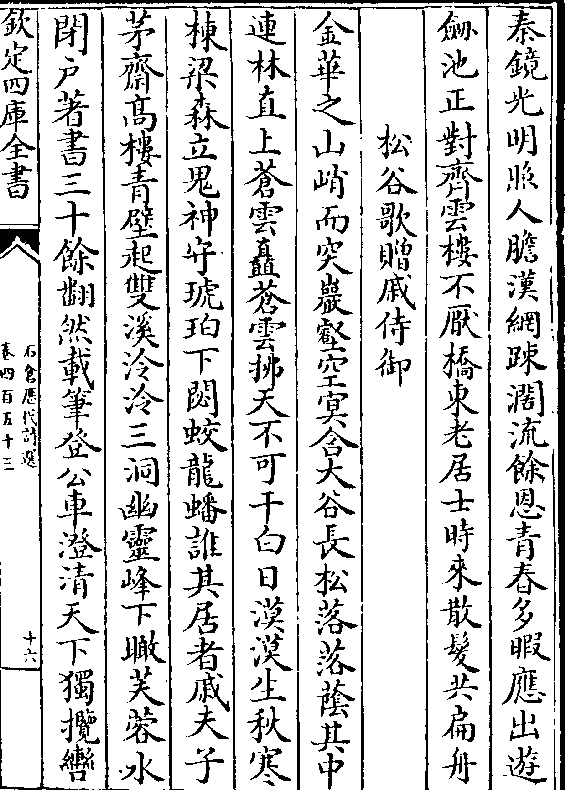 秦鏡光明照人膽漢網踈濶流餘恩青春多暇應出遊
劒池正對齊雲樓不厭橋東老居士時來散髮共扁舟
松谷歌贈戚侍御
金華之山峭而突巖壑空冥含大谷長松落落蔭其中
連林直上蒼雲矗蒼雲拂天不可干白日漠漠生秋寒
棟梁森立鬼神守琥珀下閟蛟龍蟠誰其居者戚夫子
茅齋髙樓青壁起雙溪泠泠三洞幽靈峰下瞰芙蓉水
閉户著書三十餘翻然載筆登公車澄清天下獨攬轡
欽定四庫全書
石倉歷代詩選
卷四百五十三
十六